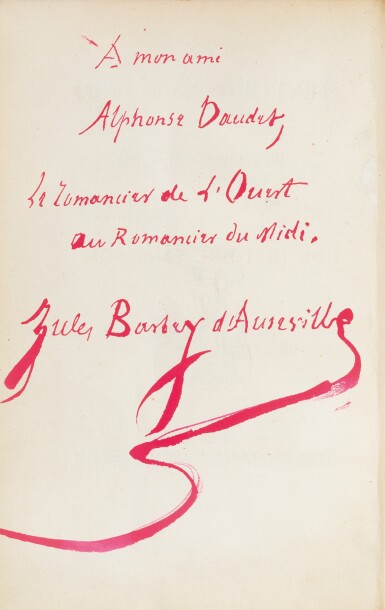 À mon ami
Alphonse Daudet,
Le Romancier de L'Ouest
au Romancier du Midi.
Jules Barbey d'Aurevilly